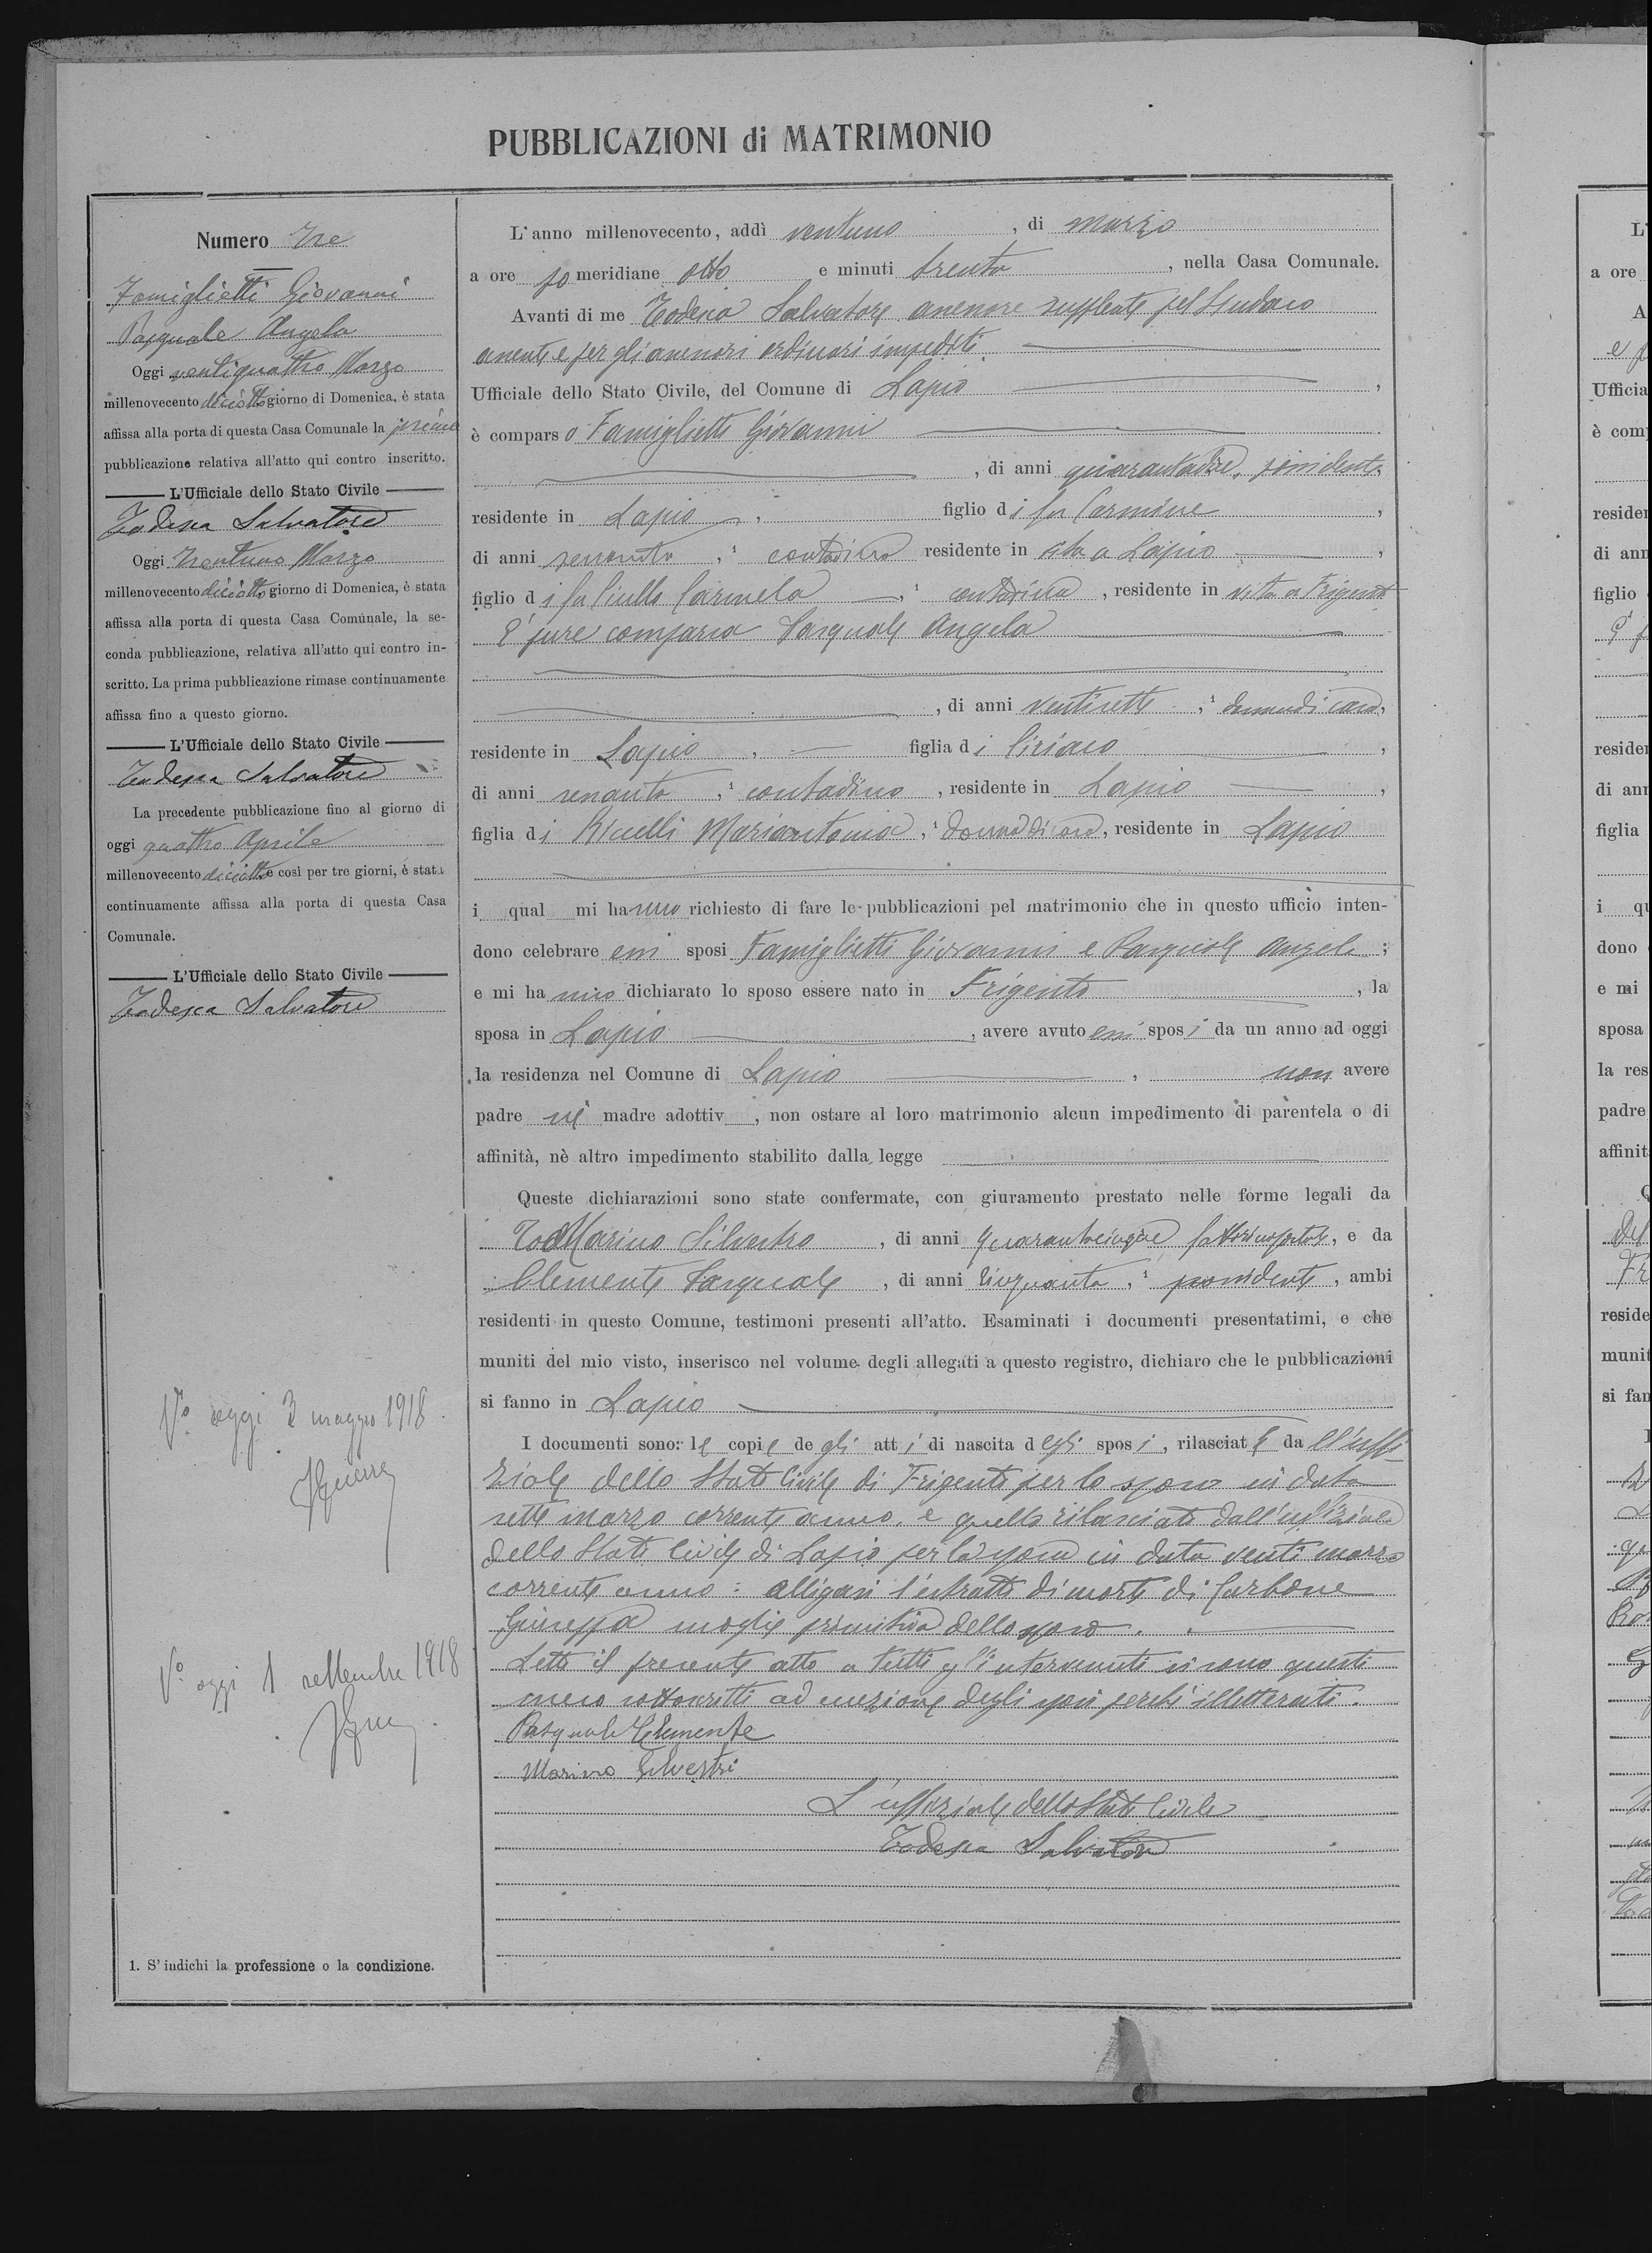 PUBBLICAZIONI di MATRIMONIO
Numero Tre
Famiglietti Giovanni
Pasquale Angela
Oggi ventiquattro Marzo
millenovecento diciotto giorno di Domenica, è stata
affissa alla porta di questa Casa Comunale la prima
pubblicazione relativa all'atto qui contro inscritto.
L'Ufficiale dello Stato Civile
Todesca Salvatore
Oggi trentuno Marzo
millenovecento diciotto giorno di Domenica, è stata
affissa alla porta di questa Casa Comunale, la se-
conda pubblicazione, relativa all'atto qui contro in-
scritto. La prima pubblicazione rimase continuamente
affissa fino a questo giorno.
L'Ufficiale dello Stato Civile
Todesca Salvatore
La precedente pubblicazione fino al giorno di
oggi quattro Aprile
millenovecento diciotto e così per tre giorni, è stata
continuamente affissa alla porta di questa Casa
Comunale.
L'Ufficiale dello Stato Civile
Todesca Salvatore
V° oggi 2 maggio 1918
V° oggi 1 settembre 1918
1. S'indichi la professione o la condizione.
L'anno millenovecento, addì ventuno, di marzo
a ore po meridiane otto e minuti trenta, nella Casa Comunale.
Avanti di me Todesca Salvatore assessore supplente pel Sindaco
assente e per gli assessori ordinari impediti
Ufficiale dello Stato Civile, del Comune di Lapio,
è comparso Famiglietti Giovanni
, di anni quarantatre, possidente
residente in Lapio, figlio di fu Carmine,
di anni , ¹ contadino residente in vita a Lapio,
figlio di fu Ciullo Carmela, ¹ contadina, residente in vita a Frigento
È pure comparsa Pasquale Angela
, di anni ventisette, ¹ donna di casa,
residente in Lapio, figlia di Ciriaco,
di anni sessanta, ¹ contadino, residente in Lapio,
figlia di Mariantonia, ¹ donna di casa, residente in Lapio
i qual mi hanno richiesto di fare le pubblicazioni pel matrimonio che in questo ufficio inten-
dono celebrare essi sposi Famiglietti Giovanni e Pasquale Angela;
e mi hanno dichiarato lo sposo essere nato in Frigento, la
sposa in Lapio, avere avuto essi sposi da un anno ad oggi
la residenza nel Comune di Lapio, non avere
padre nè madre adottiv , non ostare al loro matrimonio alcun impedimento di parentela o di
affinità, nè altro impedimento stabilito dalla legge
Queste dichiarazioni sono state confermate, con giuramento prestato nelle forme legali da
Marino Silvestro, di anni quarantacinque, e da
Clemente Pasquale, di anni cinquanta, ¹ possidente, ambi
residenti in questo Comune, testimoni presenti all'atto. Esaminati i documenti presentatimi, e che
muniti del mio visto, inserisco nel volume degli allegati a questo registro, dichiaro che le pubblicazioni
si fanno in Lapio
I documenti sono: le copie degli atti di nascita degli sposi, rilasciate dall'uffi-
ziale dello Stato Civile di Frigento per lo sposo in data
sette marzo corrente anno, e quello rilasciato dall'uffiziale
dello Stato Civile di Lapio per la sposa in data venti marzo
corrente anno: alligasi l'estratto di morte di Carbone
Giuseppa moglie primitiva dello sposo.
Letto il presente atto a tutti gl'intervenuti si sono questi
meco sottoscritti ad eccezione degli sposi perchè illetterati.
Pasquale Clemente
Marino Silvestri
L'uffiziale dello Stato Civile
Todesca Salvatore
L'
a ore
A
Ufficia
è com
reside
di ann
figlio
reside
di ann
figlia
i qu
dono
e mi
sposa
la res
padre
affinit
reside
munit
si fan